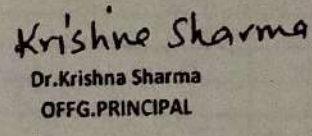 Krishne Sharma
Dr.Krishna Sharma
OFFG.PRINCIPAL